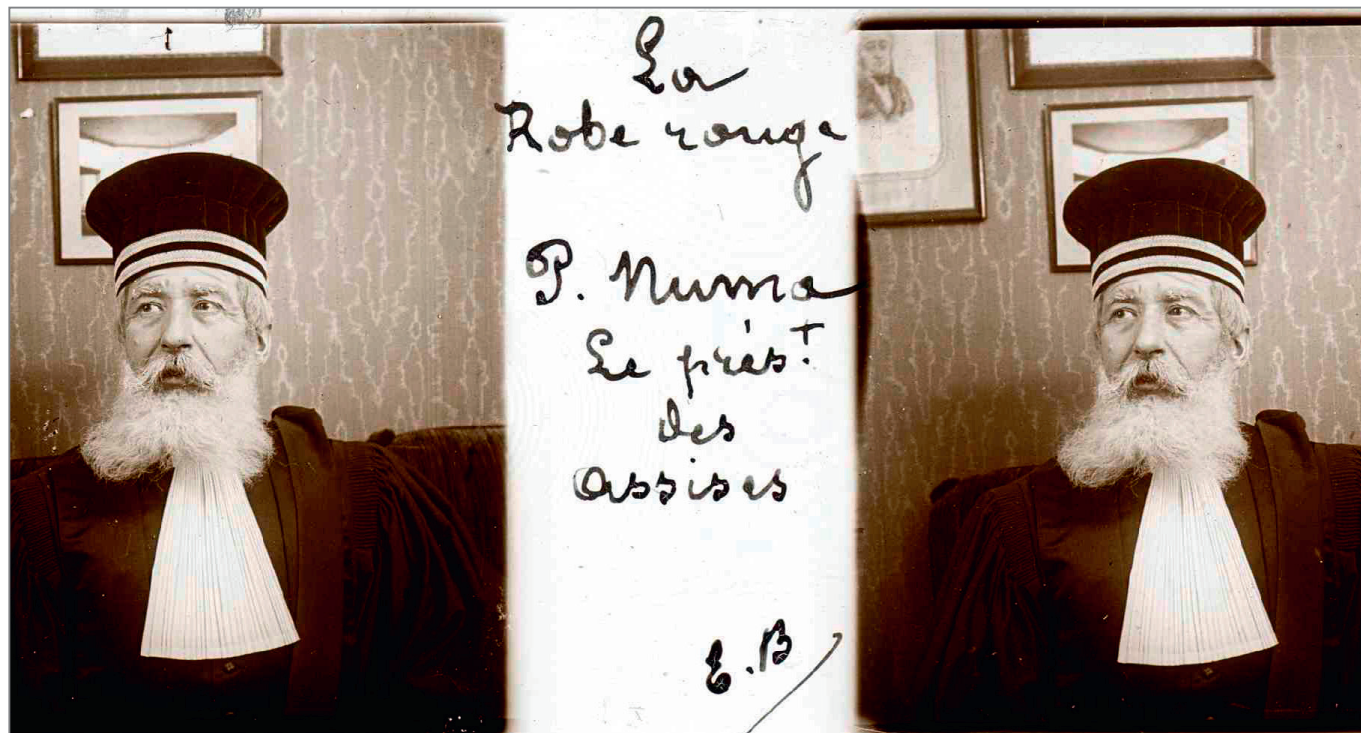 La
Robe rouge
P. Numa
Le prés.t
des
assises
E.B